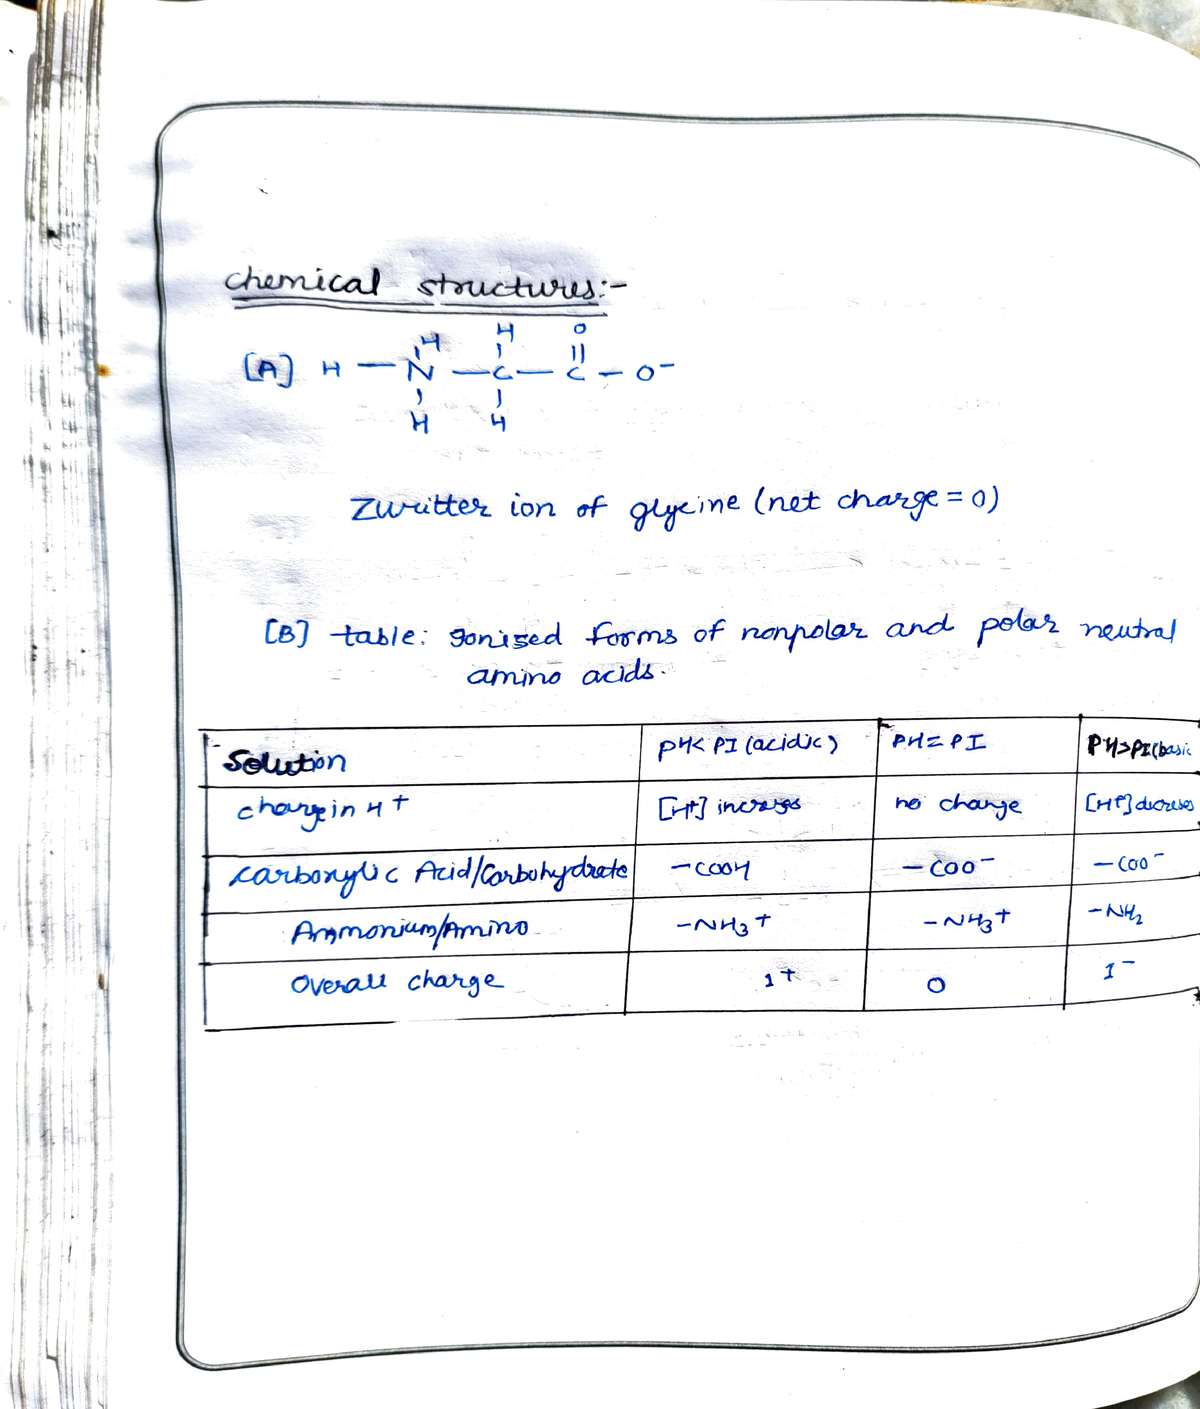 chemical structures:-
H O
H | ||
[A] H — N — C — C — O-
| |
H H
Zwritter ion of glycine (net charge = 0)
[B] table: Ionised forms of nonpolar and polar neutral
amino acids.
Solution PH< PI (acidic) PH= PI PH>PI(basic
change in H+ [H+] increases no change [H+] decreses
carboxylic Acid/Carbohydrate -COOH -COO- -COO-
Ammonium/Amino -NH3+ -NH3+ -NH2
Overall charge 1+ 0 1-